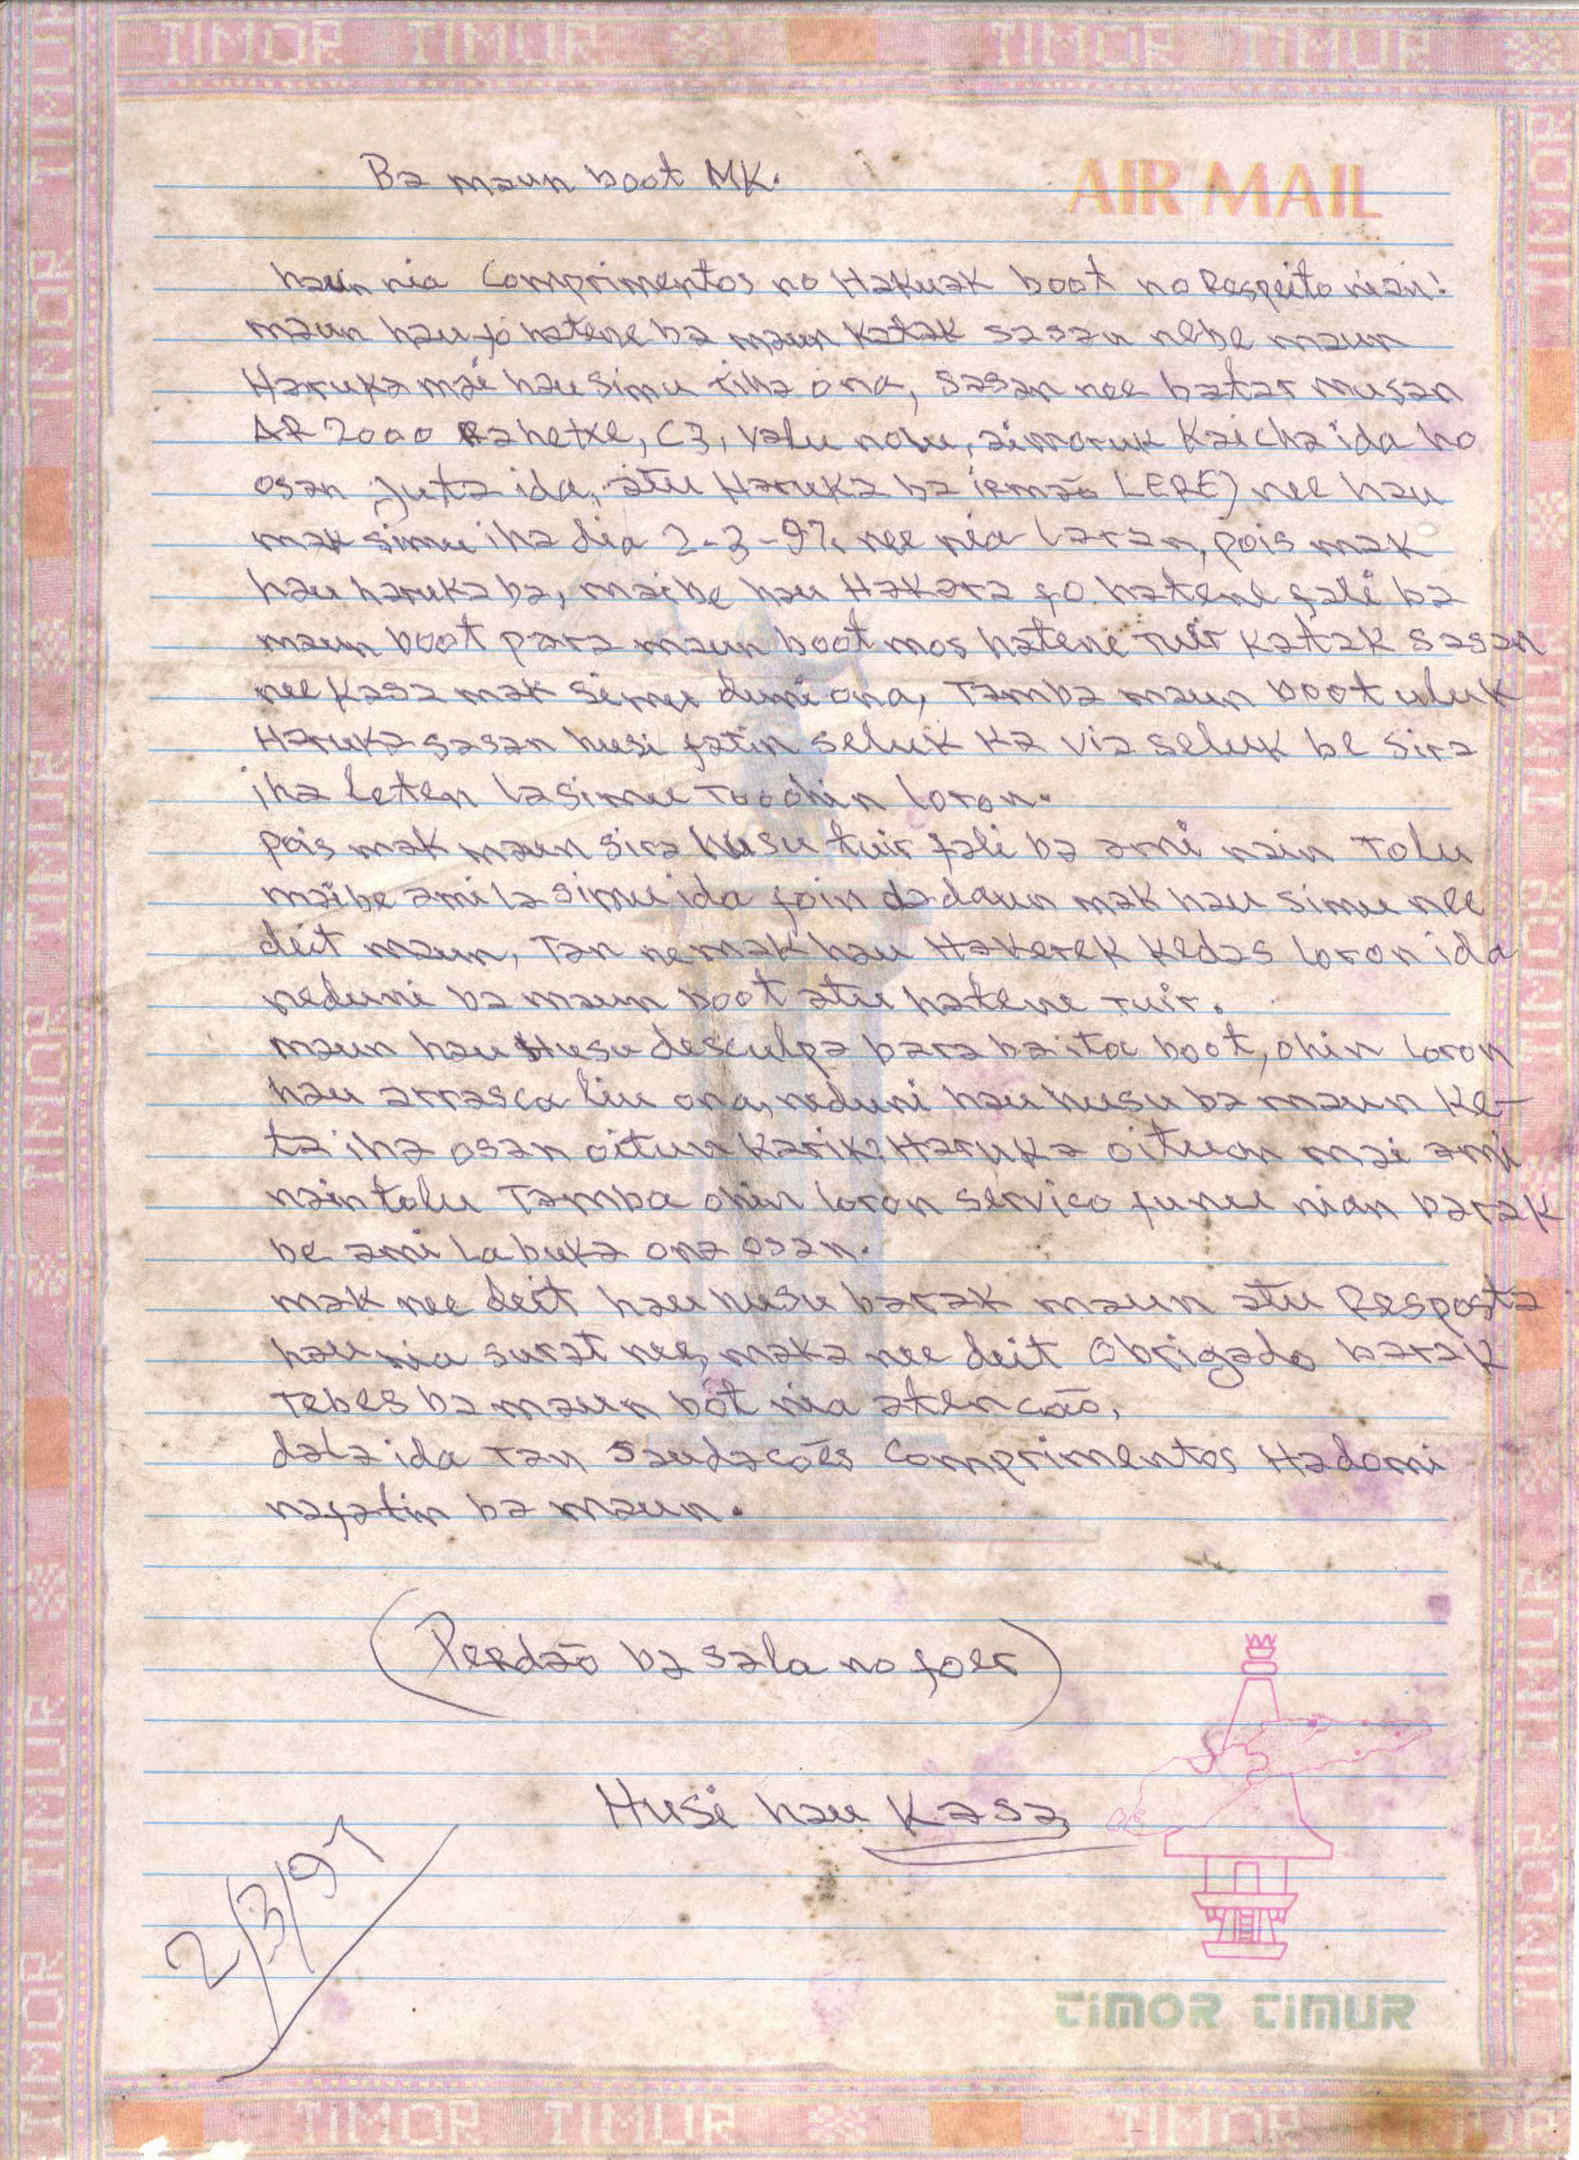 TIMOR TIMUR TIMOR TIMUR
AIR MAIL
Ba maun boot MK.
haun nia Comprimentos no Hakuak boot no Respeito nian!
maun hau fo hatene ba maun katak sasan nebe maun
Haruka mai hau simu tiha ona, sasan nee batar musan
AR 2000 Rahetxe, C3, valu nolu, aimoruk Kaicha ida ho
osan Juta ida, atu Haruka ba irmão LERE) nee hau
mak simu iha dia 2-3-97, nee nia laran, pois mak
hau haruka ba, maibe hau Hakara fo hatene fali ba
maun boot para maun boot mos hatene tuir katak sasan
nee Kasa mak simu duni ona, Tamba maun boot uluk
Haruka sasan husi fatin seluk ka via seluk be sira
iha leten la simu to ohin loron.
pois mak maun sira husu tuir fali ba ami nain Tolu
maibe ami la simu ida foin dadaun mak hau simu nee
deit maun, Tan ne mak hau Hakerek kedas loron ida
neduni ba maun boot atu hatene tuir.
maun hau Husu desculpa bara ba ita boot, ohin loron
hau arrasca liu ona, neduni hau husu ba maun Ke-
ta iha osan oitun karik, Haruka oituan mai ami
nain tolu Tamba ohin loron servico funu nian barak
be ami la buka ona osan.
mak nee deit hau husu barak maun atu Resposta
hau nia surat nee, maka nee deit Obrigado barak
Tebes ba maun bót nia atencão,
dala ida tan Saudacões Comprimentos Hadomi
nafatin ba maun.
(Perdão ba sala no foer)
Husi hau Kasa
2/3/97
TIMOR TIMUR
TIMOR TIMUR TIMOR TIMUR